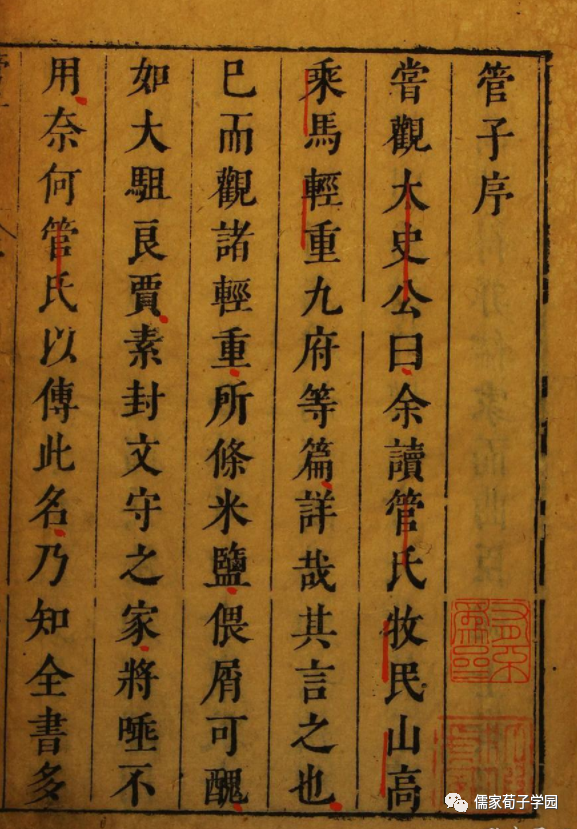 管子序
嘗觀大史公曰余讀管氏牧民山高
乘馬輕重九府等篇詳哉其言之也
巳而觀諸輕重所條米鹽偎屑可醜
如大駔良賈素封文守之家將唾不
用奈何管氏以傳此名乃知全書多
儒家荀子学园